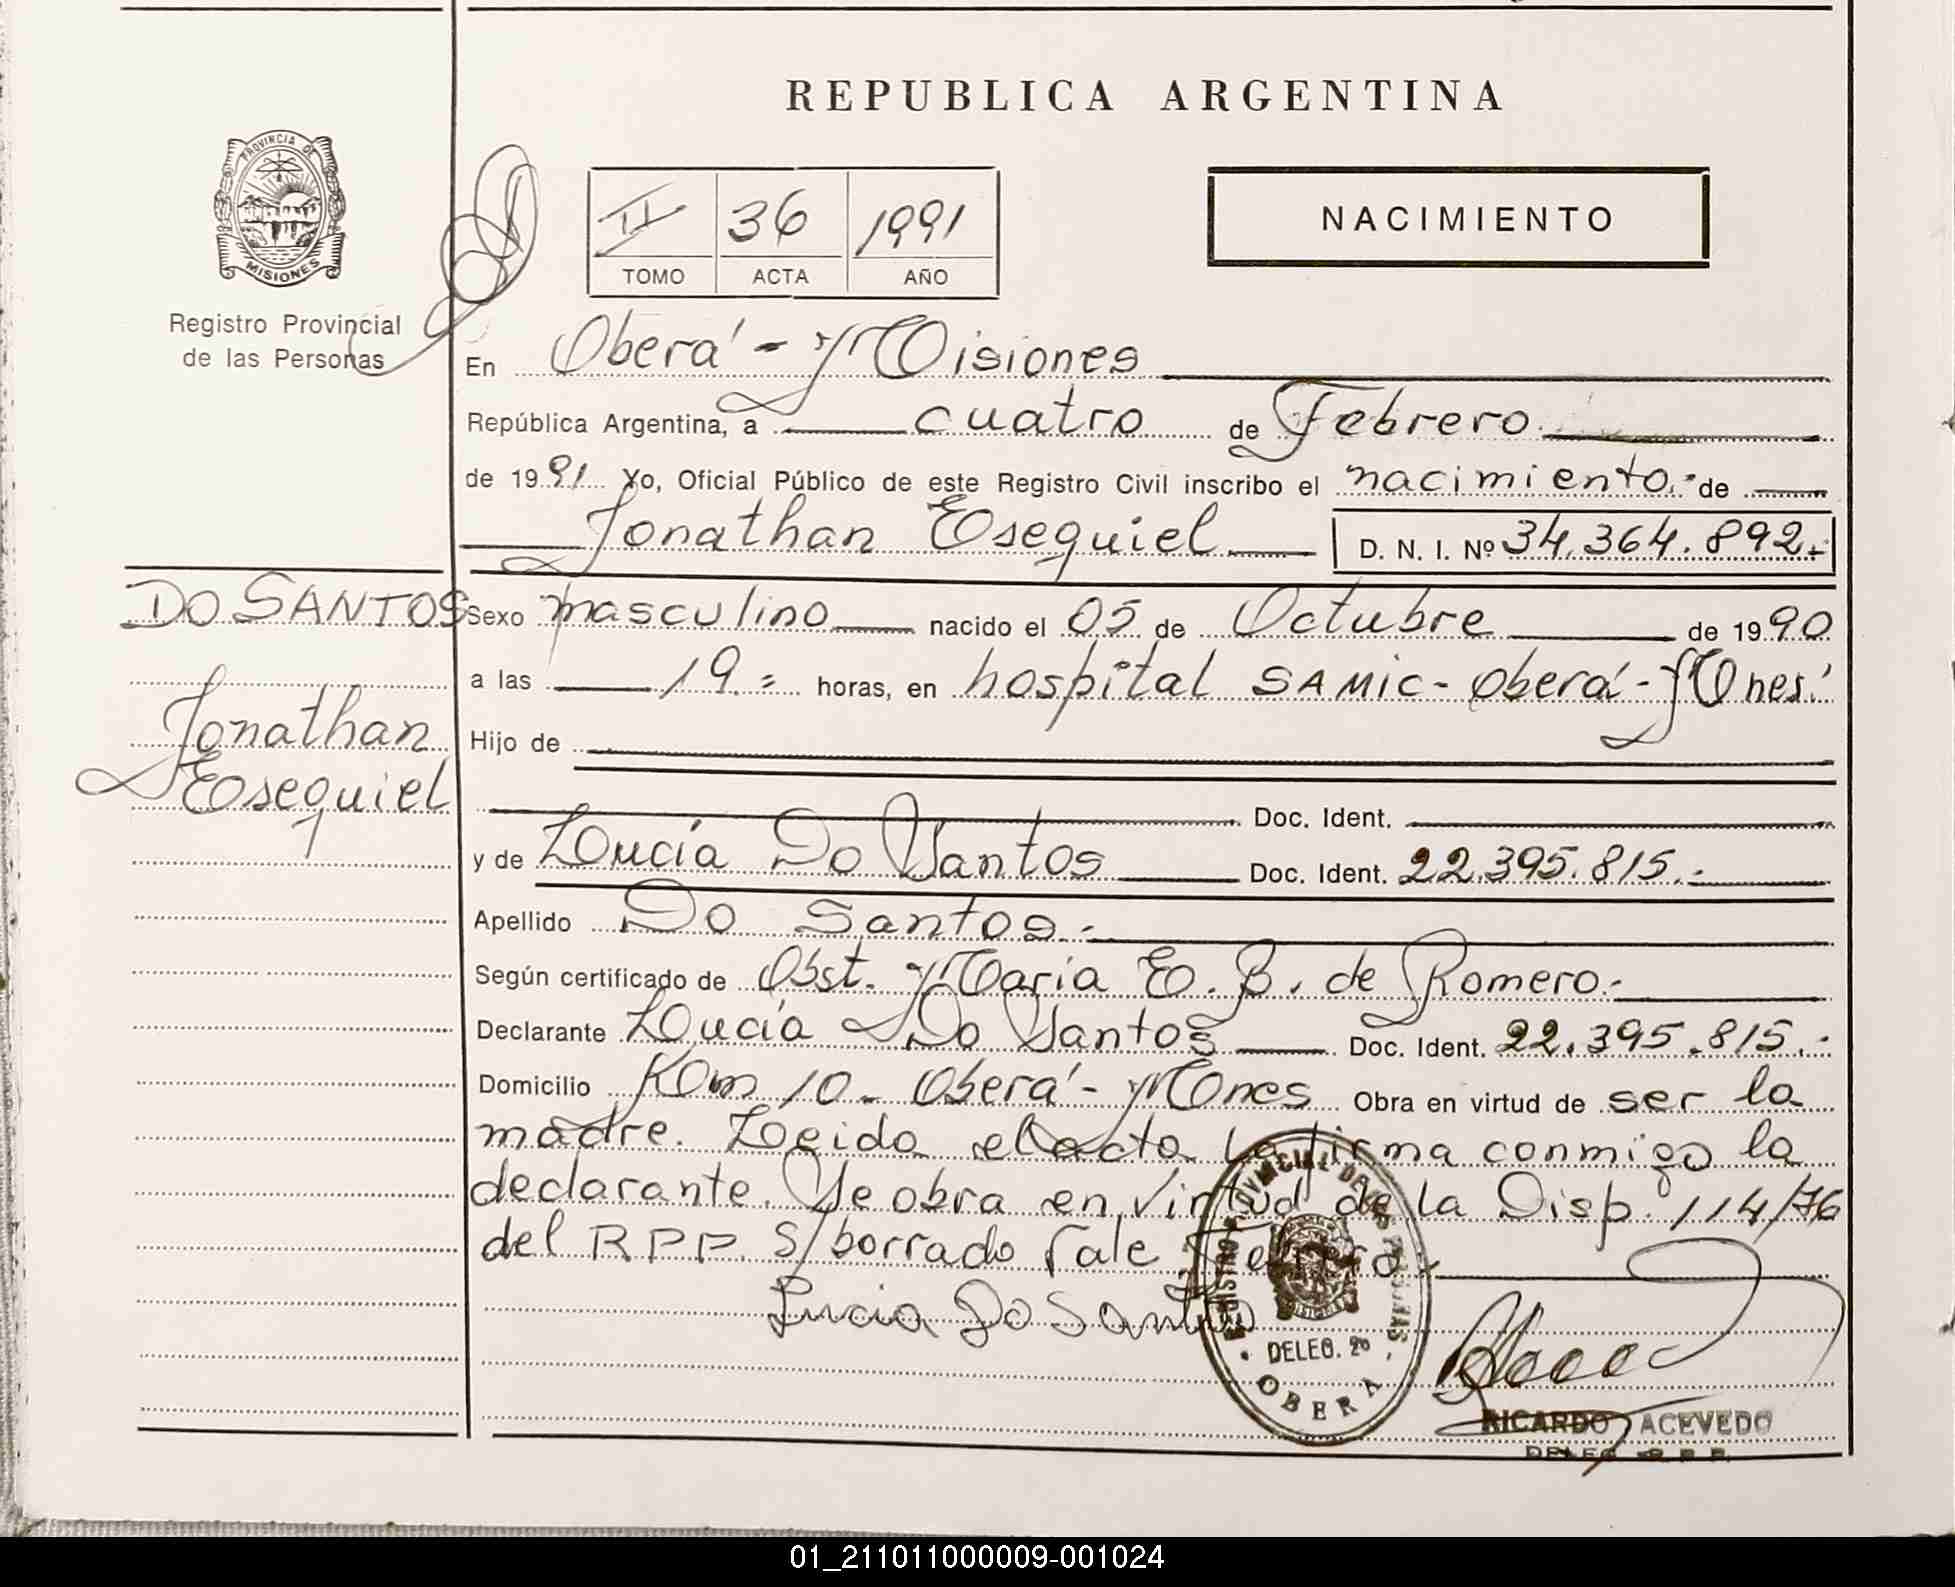 REPUBLICA ARGENTINA
PROVINCIA DE
MISIONES
Registro Provincial
de las Personas
II 36 1991
TOMO ACTA AÑO
NACIMIENTO
En Oberá - Misiones
República Argentina, a cuatro de Febrero
de 1991 Yo, Oficial Público de este Registro Civil inscribo el nacimiento de
Jonathan Esequiel D. N. I. Nº 34.364.892.-
DO SANTOS
Jonathan
Esequiel
Sexo masculino nacido el 05 de Octubre de 1990
a las 19.= horas, en hospital SAMIC - Oberá - Mnes.
Hijo de
Doc. Ident.
y de Lucía Do Santos Doc. Ident. 22.395.815.-
Apellido Do Santos.-
Según certificado de Obst. María E. B. de Romero.-
Declarante Lucía Do Santos Doc. Ident. 22.395.815.-
Domicilio Km 10 - Oberá - Mnes Obra en virtud de ser la
madre. Leida el acta la firma conmigo la
declarante. Se obra en virtud de la Disp. 114/76
del RPP. S/borrado Vale Febrero.-
Lucia Do Santos
REGISTRO PROVINCIAL DE LAS PERSONAS
DELEG. 20
OBERA
RICARDO ACEVEDO
DELEG. R. P. P.
01_211011000009-001024